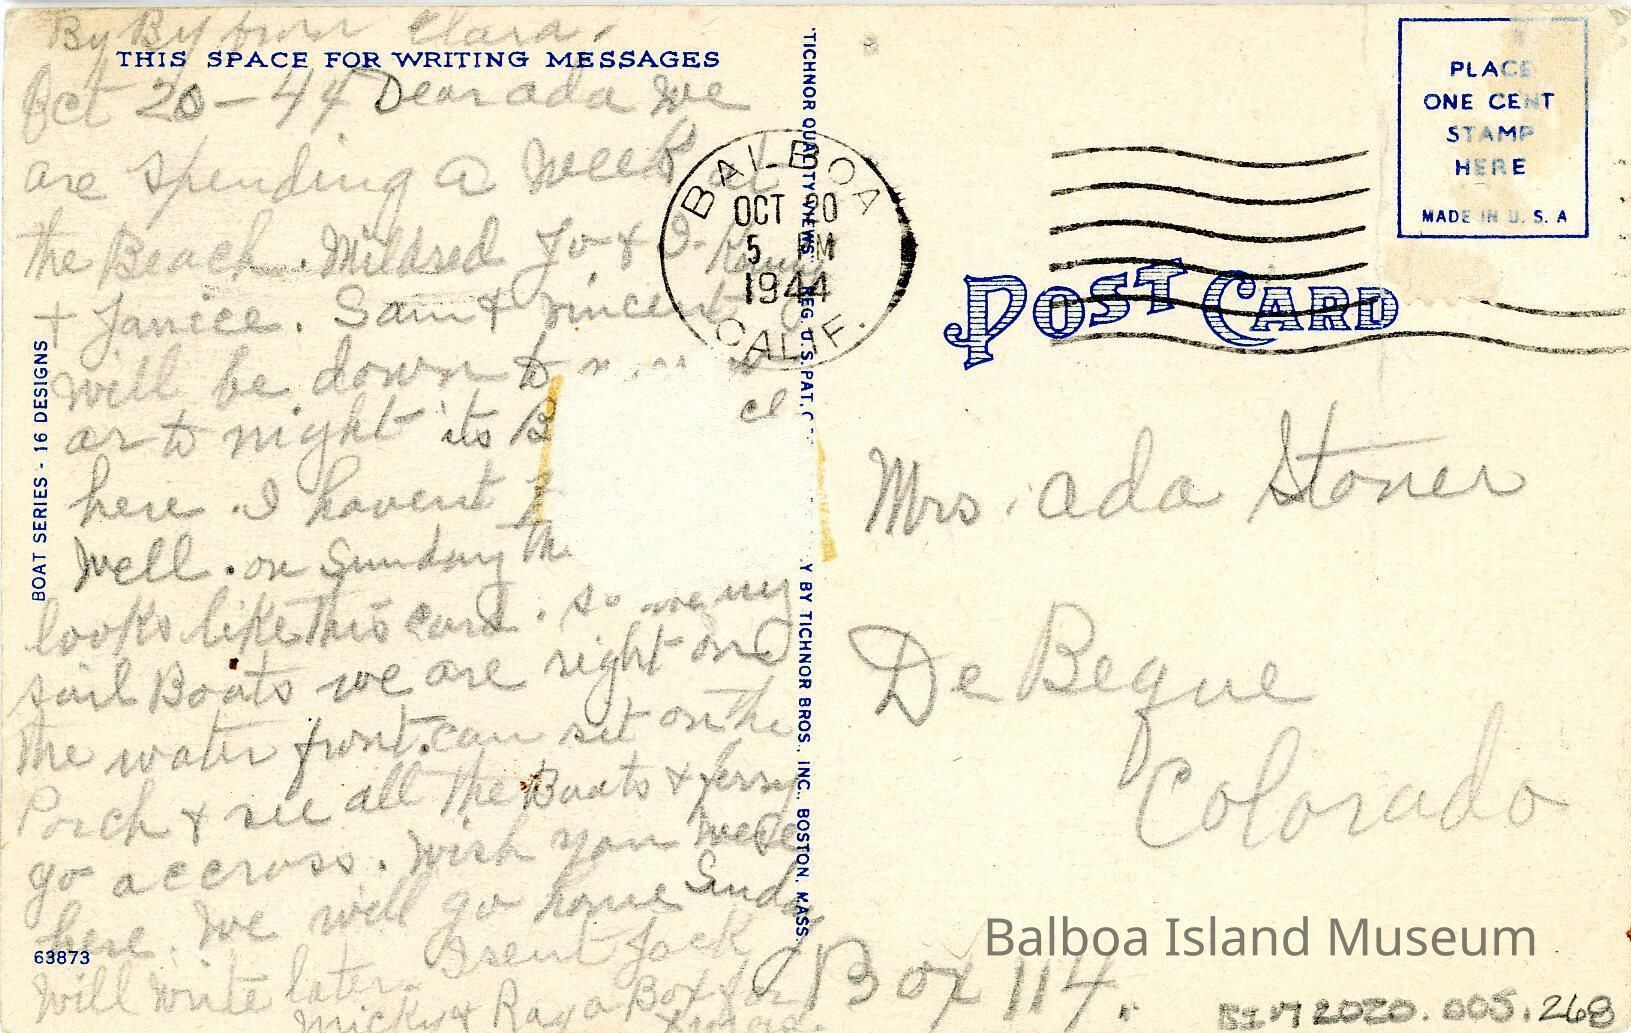 By By from Clara.
THIS SPACE FOR WRITING MESSAGES
Oct 20-44 Dear ada we
are spending a week at
the Beach. Mildred Jo + I.
+ Janice. Sam + Vincent
will be down to
ar to night its B
here. I havent
well. on Sunday th
looks like this card. so many
sail Boats we are right on
the water front. can set on the
Porch + see all the Boats + ferry
go accross. Wish you were
here. We will go home Sunday
Will write later. I sent Jack
Micky + Ray a Box for
Xmas.
BOAT SERIES - 16 DESIGNS
63873
"TICHNOR QUALITY VIEWS" REG. U. S. PAT.
Y BY TICHNOR BROS., INC., BOSTON, MASS.
BALBOA
OCT 20
5 PM
1944
CALIF.
PLACE
ONE CENT
STAMP
HERE
MADE IN U. S. A
POST CARD
Mrs. Ada Stoner
De Beque
Colorado
Box 114.
Balboa Island Museum
BIM 2020.005.268